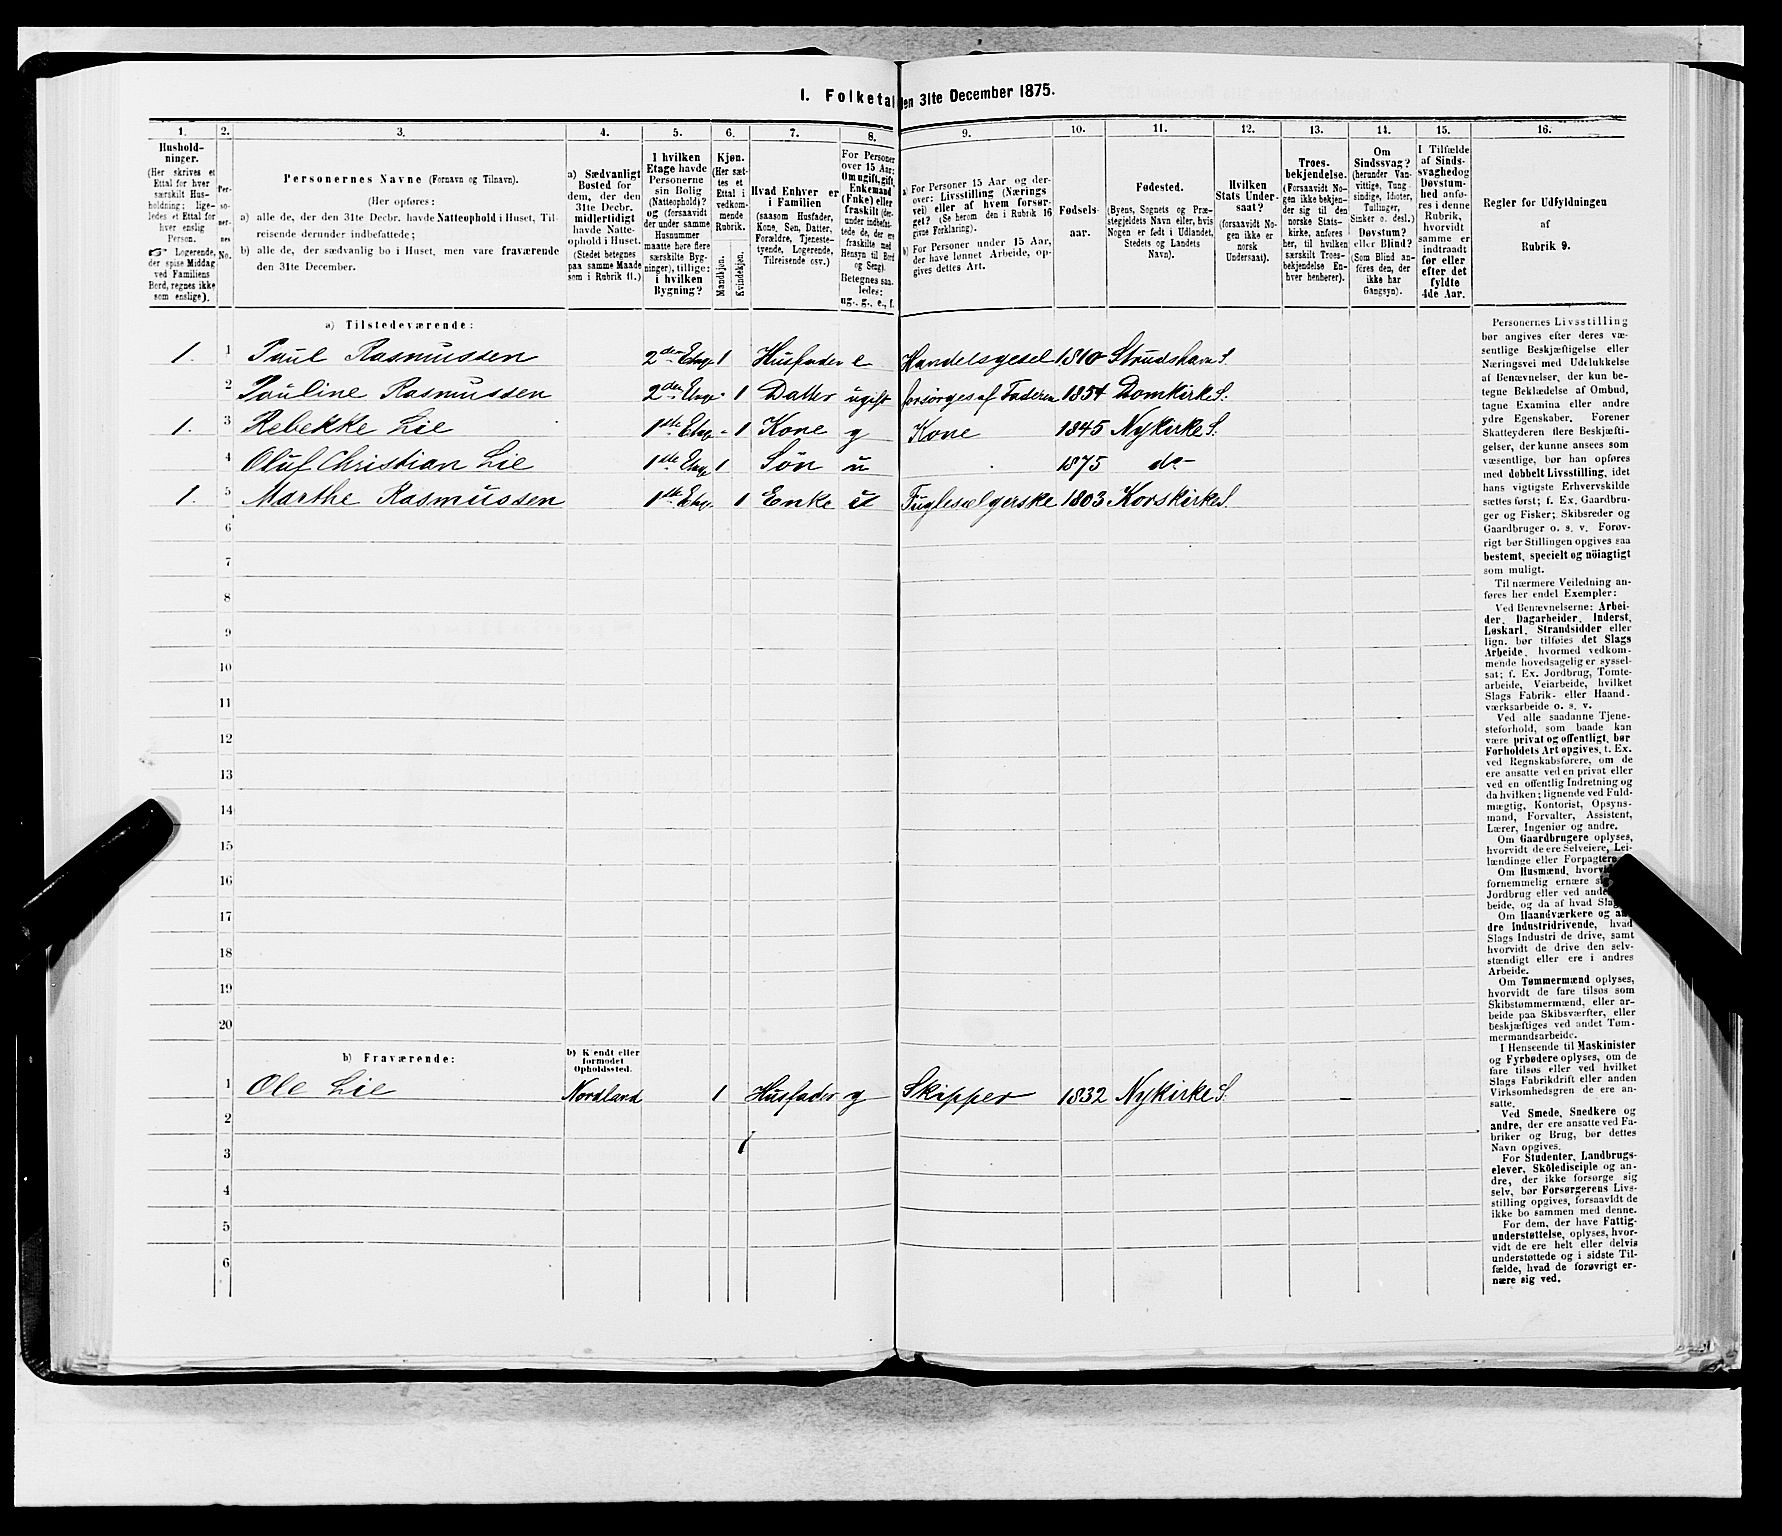 I. Folketal den 31te December 1875.
1. 2. 3. 4. 5. 6. 7. 8. 9. 10. 11. 12. 13. 14. 15. 16.
Hushold-
ninger.
(Her skrives et
Ettal for hver
særskilt Hus-
holdning; lige-
ledes et Ettal for
hver enslig
Person.
☞ Logerende,
der spise Middag
ved Familiens
Bord, regnes ikke
som enslige).
Per-
so-
ner-
nes
No.
Personernes Navne (Fornavn og Tilnavn).
(Her opføres:
a) alle de, der den 31te Decbr. havde Natteophold i Huset, Til-
reisende derunder indbefattede;
b) alle de, der sædvanlig bo i Huset, men vare fraværende
den 31te December.
a) Sædvanligt
Bosted for
dem, der den
31te Decbr.
midlertidigt
havde Natte-
ophold i Huset.
(Stedet betegnes
paa samme Maade
som i Rubrik 11.)
I hvilken
Etage havde
Personerne
sin Bolig
(Natteophold)?
og (forsaavidt
der under samme
Husnummer
maatte høre flere
særskilte Byg-
ninger), tillige:
i hvilken
Bygning?
Kjøn.
(Her sæt-
tes et
Ettal i
vedkom-
mende
Rubrik.
Mandkjøn.
Kvindekjøn.
Hvad Enhver er
i Familien
(saasom Husfader,
Kone, Søn, Datter,
Forældre, Tjeneste-
tyende, Logerende,
Tilreisende osv.)
For Personer
over 15 Aar:
Om ugift, gift,
Enkemand
(Enke) eller
fraskilt (der-
under indbefat-
tede de, der ere
fraskilte med
Hensyn til Bord
og Seng).
Betegnes saa-
ledes:
ug., g., e., f.
a) For Personer 15 Aar og der-
over: Livsstilling (Nærings
vei) eller af hvem forsør-
get? (Se herom den i Rubrik 16
givne Forklaring).
b) For Personer under 15 Aar,
der have lønnet Arbeide, op-
gives dettes Art.
Fødsels-
aar.
Fødested.
(Byens, Sognets og Præ-
stegjeldets Navn eller, hvis
Nogen er født i Udlandet,
Stedets og Landets
Navn).
Hvilken
Stats Under-
saat?
(forsaavidt No-
gen ikke er
norsk
Undersaat).
Troes-
bekjendelse.
(Forsaavidt No-
gen ikke bekjen-
der sig til den
norske Stats-
kirke, anføres
her, til hvilken
særskilt Troes-
bekjendelse En-
hver henhører).
Om
Sindssvag?
(herunder Van-
vittige, Tung-
sindige, Idioter,
Tullinger,
Sinker o. desl.)
Døvstum?
eller Blind?
(Som Blind an-
føres den, der
ikke har
Gangsyn).
I Tilfælde
af Sinds-
svaghed og
Døvstum-
hed anfø-
res i denne
Rubrik,
hvorvidt
samme er
indtraadt
før eller
efter det
fyldte
4de Aar.
Regler for Udfyldningen
af
Rubrik 9.
a) Tilstedeværende:
1. 1 Paul Rasmussen 2den Etage 1 Husfader e Handelsgesel 1810 Strudshavn S.
2 Pauline Rasmussen 2den Etage - 1 Datter ugift forsørges af Faderen 1854 Domkirke S.
1. 3 Rebekke Lie 1ste Etage - 1 Kone g Kone 1845 Nykirke S.
4 Oluf Christian Lie 1ste Etage 1 Søn u 1875 do -
1. 5 Marthe Rasmussen 1ste Etage 1 Enke Fuglesælgerske 1803 Korskirke S.
6
7
8
9
10
11
12
13
14
15
16
17
18
19
20
b) Fraværende:
b) Kjendt eller
formodet
Opholdssted.
1 Ole Lie Nordland 1 Husfader g Skipper 1832 Nykirke S.
2
3
4
5
6
Personernes Livsstilling
bør angives efter deres væ-
sentlige Beskjæftigelse eller
Næringsvei med Udelukkelse
af Benævnelser, der kun be-
tegne Beklædelse af Ombud,
tagne Examina eller andre
ydre Egenskaber. Forener
Skatteyderen flere Beskjæfti-
gelser, der kunne ansees som
væsentlige, bør han opføres
med dobbelt Livsstilling, idet
hans vigtigste Erhvervskilde
sættes først; f. Ex. Gaardbru-
ger og Fisker; Skibsreder og
Gaardbruger o. s. v. Forøv-
rigt bør Stillingen opgives saa
bestemt, specielt og nöiagtigt
som muligt.
Til nærmere Veiledning an-
føres her endel Exempler:
Ved Benævnelserne: Arbei-
der, Dagarbeider, Inderst,
Løskarl, Strandsidder eller
lign. bør tilføies det Slags
Arbeide, hvormed vedkom-
mende hovedsagelig er syssel-
sat; f. Ex. Jordbrug, Tomte-
arbeide, Veiarbeide, hvilket
Slags Fabrik- eller Haand-
værksarbeide o. s. v.
Ved alle saadanne Tjene-
steforhold, som baade kan
være privat og offentligt, bør
Forholdets Art opgives, t. Ex.
ved Regnskabsførere, om de
ere ansatte ved en privat eller
ved en offentlig Indretning og
da hvilken; lignende ved Fuld-
mægtig, Kontorist, Opsyns-
mand, Forvalter, Assistent,
Lærer, Ingeniør og andre.
Om Gaardbrugere oplyses,
hvorvidt de ere Selveiere, Lei-
lændinge eller Forpagtere.
Om Husmænd, hvorvidt
fornemmelig ernære
Jordbrug eller ved
beide, og da af hvad
Om Haandværkere og
dre Industridrivende, hvad
Slags Industri de drive, samt
hvorvidt de drive den selv-
stændigt eller ere i andres
Arbeide.
Om Tømmermænd oplyses,
hvorvidt de fare tilsøs som
Skibstømmermænd, eller ar-
beide paa Skibsværfter, eller
beskjæftiges ved andet Tøm-
mermandsarbeide.
I Henseende til Maskinister
og Fyrbødere oplyses, om de
fare tilsøs eller ved hvilket
Slags Fabrikdrift eller anden
Virksomhedsgren de ere an-
satte.
Ved Smede, Snedkere og
andre, der ere ansatte ved Fa-
briker og Brug, bør dettes
Navn opgives.
For Studenter, Landbrugs-
elever, Skoledisciple og an-
dre, der ikke forsørge sig
selv, bør Forsørgerens Livs-
stilling opgives, forsaavidt de
ikke bo sammen med denne.
For dem, der have Fattig-
understøttelse, oplyses, hvor-
vidt de ere helt eller delvis
understøttede og i sidste Til-
fælde, hvad de forøvrigt er-
nære sig ved.